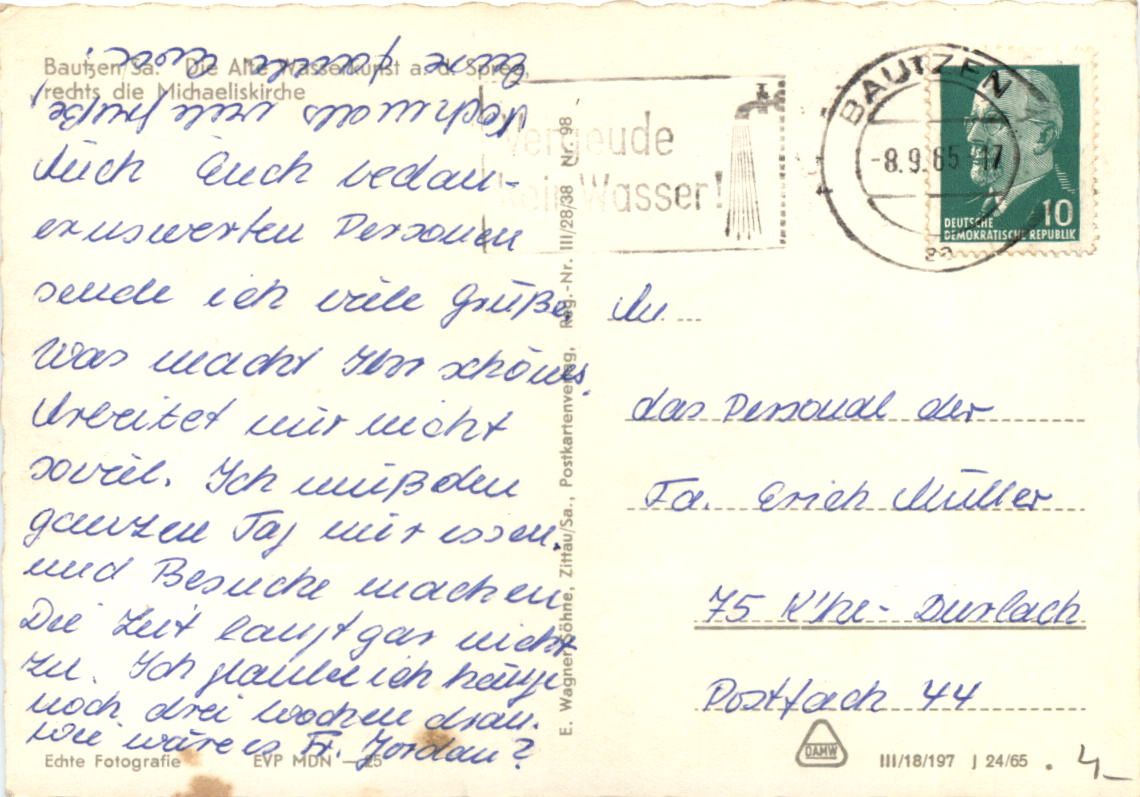 Bautzen/Sa. Die Alte Wasserkunst a. d. Spree,
rechts die Michaeliskirche
Auch Euch bedau-
ernswerten Personen
sende ich viele Grüße.
Was macht Ihr schönes.
Arbeitet mir nicht
soviel. Ich muß den
ganzen Tag nur essen.
und Besuche machen
Die Zeit langt gar nicht
zu. Ich glaube ich hänge
noch drei Wochen dran.
Wie wäre es Fr. Jordan?
Nochmals viele Grüße
Eure
Echte Fotografie EVP MDN — 25
E. Wagner Söhne, Zittau/Sa., Postkartenverlag, Reg.-Nr. III/28/38 Nr. 98
Vergeude
kein Wasser!
BAUTZEN
-8.9.65-17
10
DEUTSCHE
DEMOKRATISCHE REPUBLIK
An
das Personal der
Fa. Erich Müller
75 K'he-Durlach
Postfach 44
DAMW
III/18/197 J 24/65
4,-